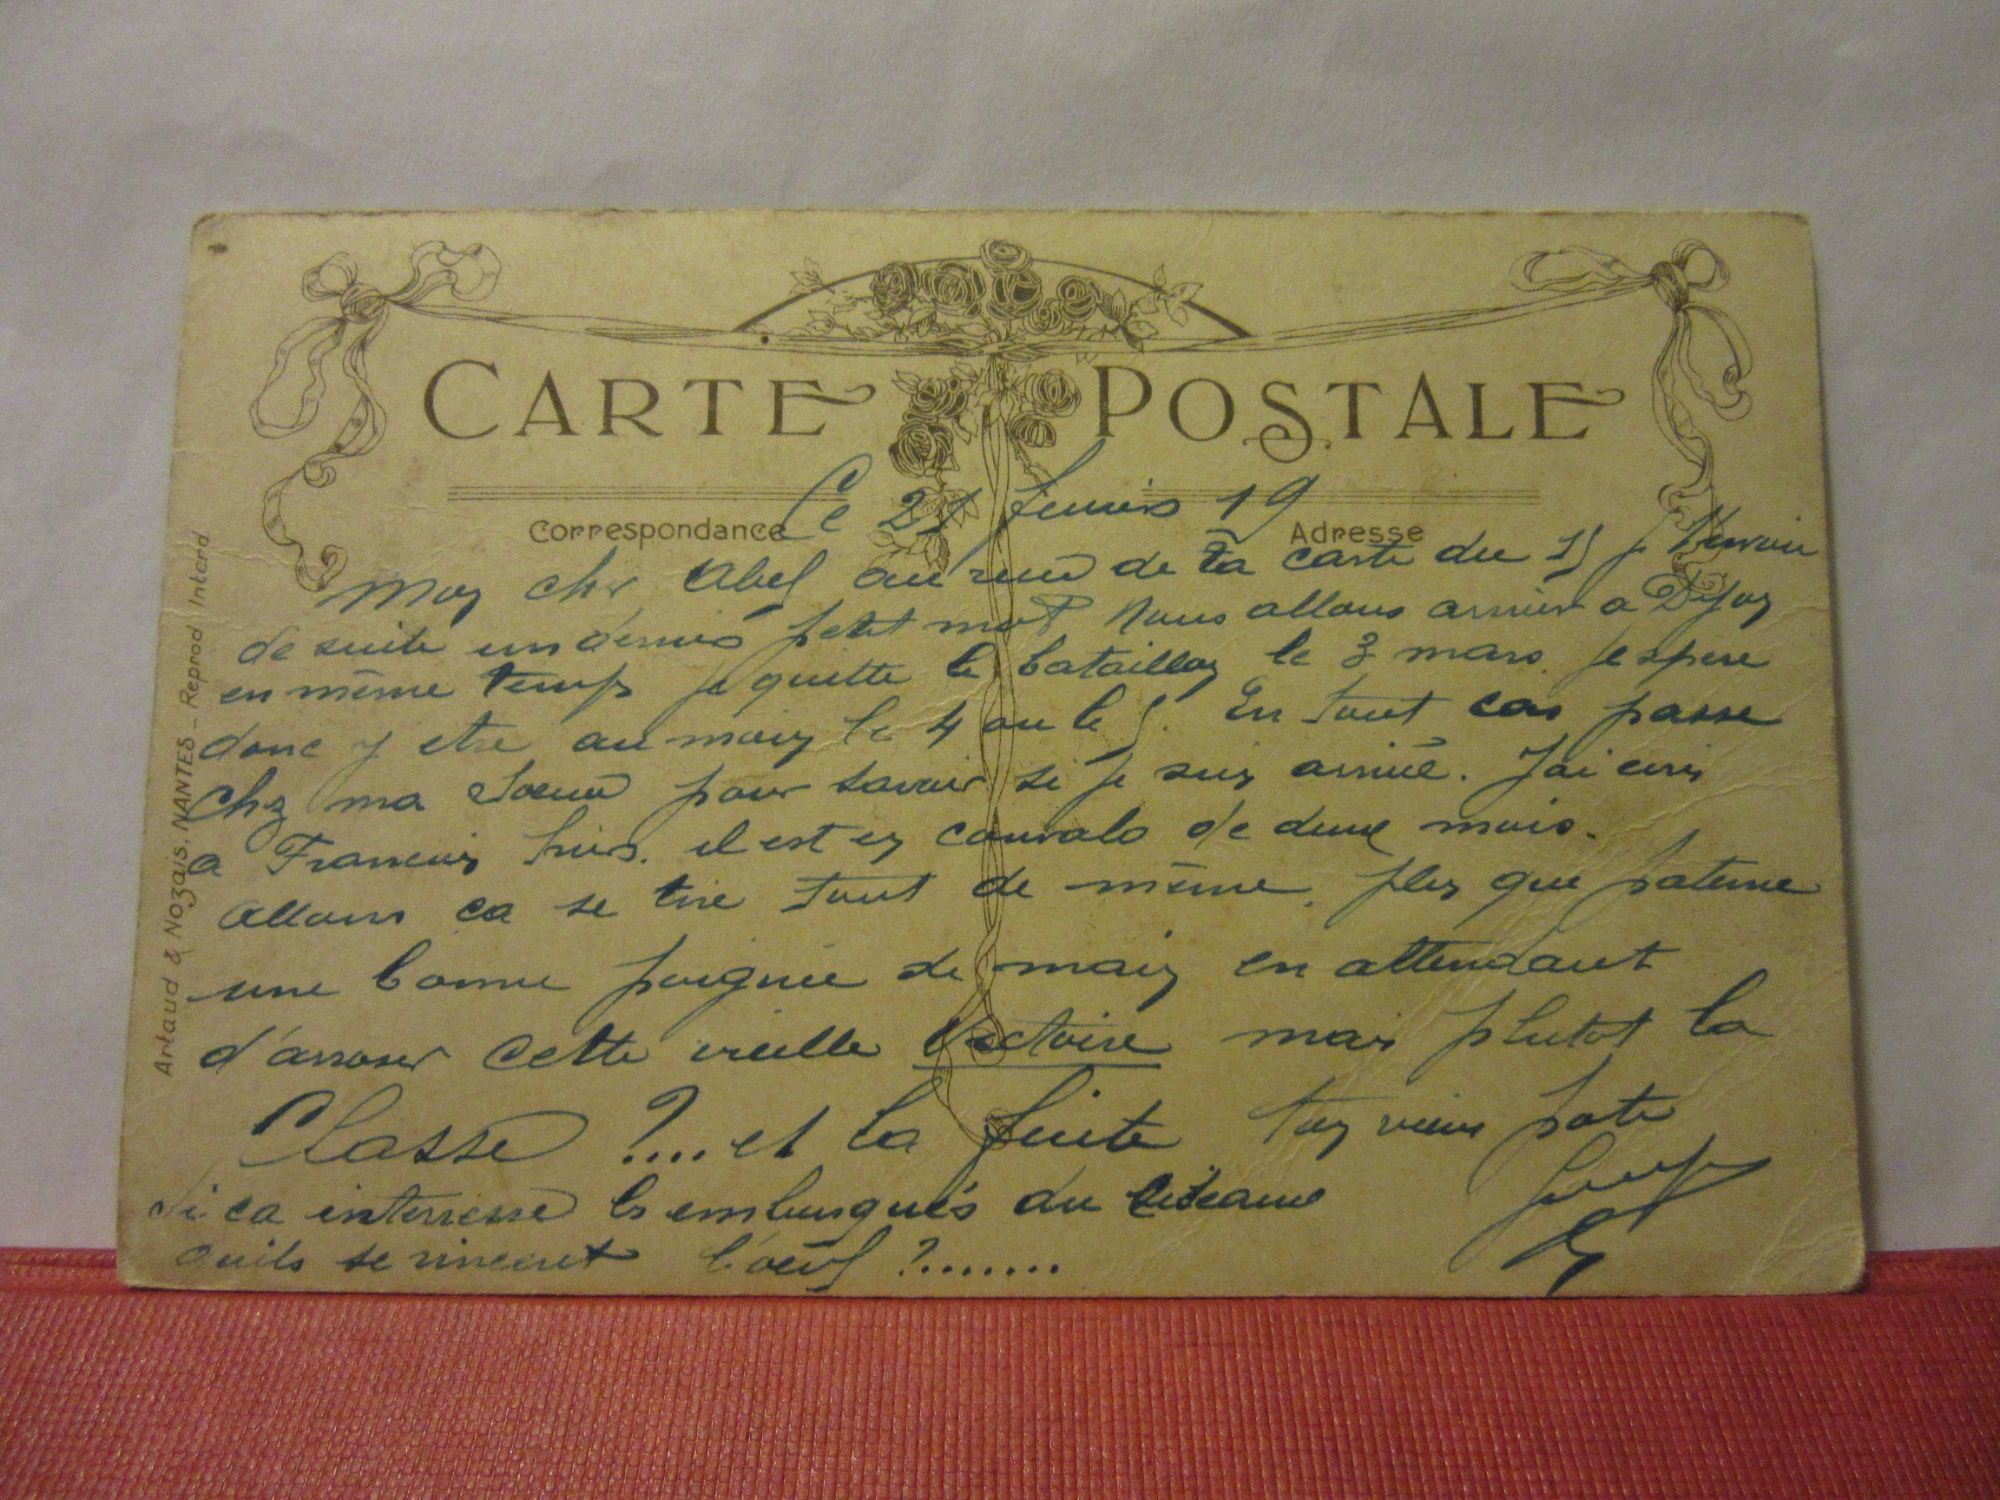 CARTE POSTALE
Correspondance
Adresse
Ce 21 fevrier 19
Mon cher Abel au reçu de ta carte du 15 je t'envoie
de suite un dernier petit mot Nous allons arriver a Dijon
en même temps je quitte le bataillon le 3 mars. J'espere
donc y etre au moin le 4 ou le 5. En tout cas passe
chez ma soeur pour savoir si je suis arrivé. J'ai ecris
a Francois hier. il est en convalo de deux mois.
Allons ca se tire tout de même. plus que
une bonne poignée de main en attendant
d'arroser cette vieille Victoire mais plutot la
Classe ?.... et la fuite Ton vieux pote
Si ca interresse les embusqués du
quils se rincent l'oeil ?.......
Artaud & Nozais. NANTES - Reprod Interd